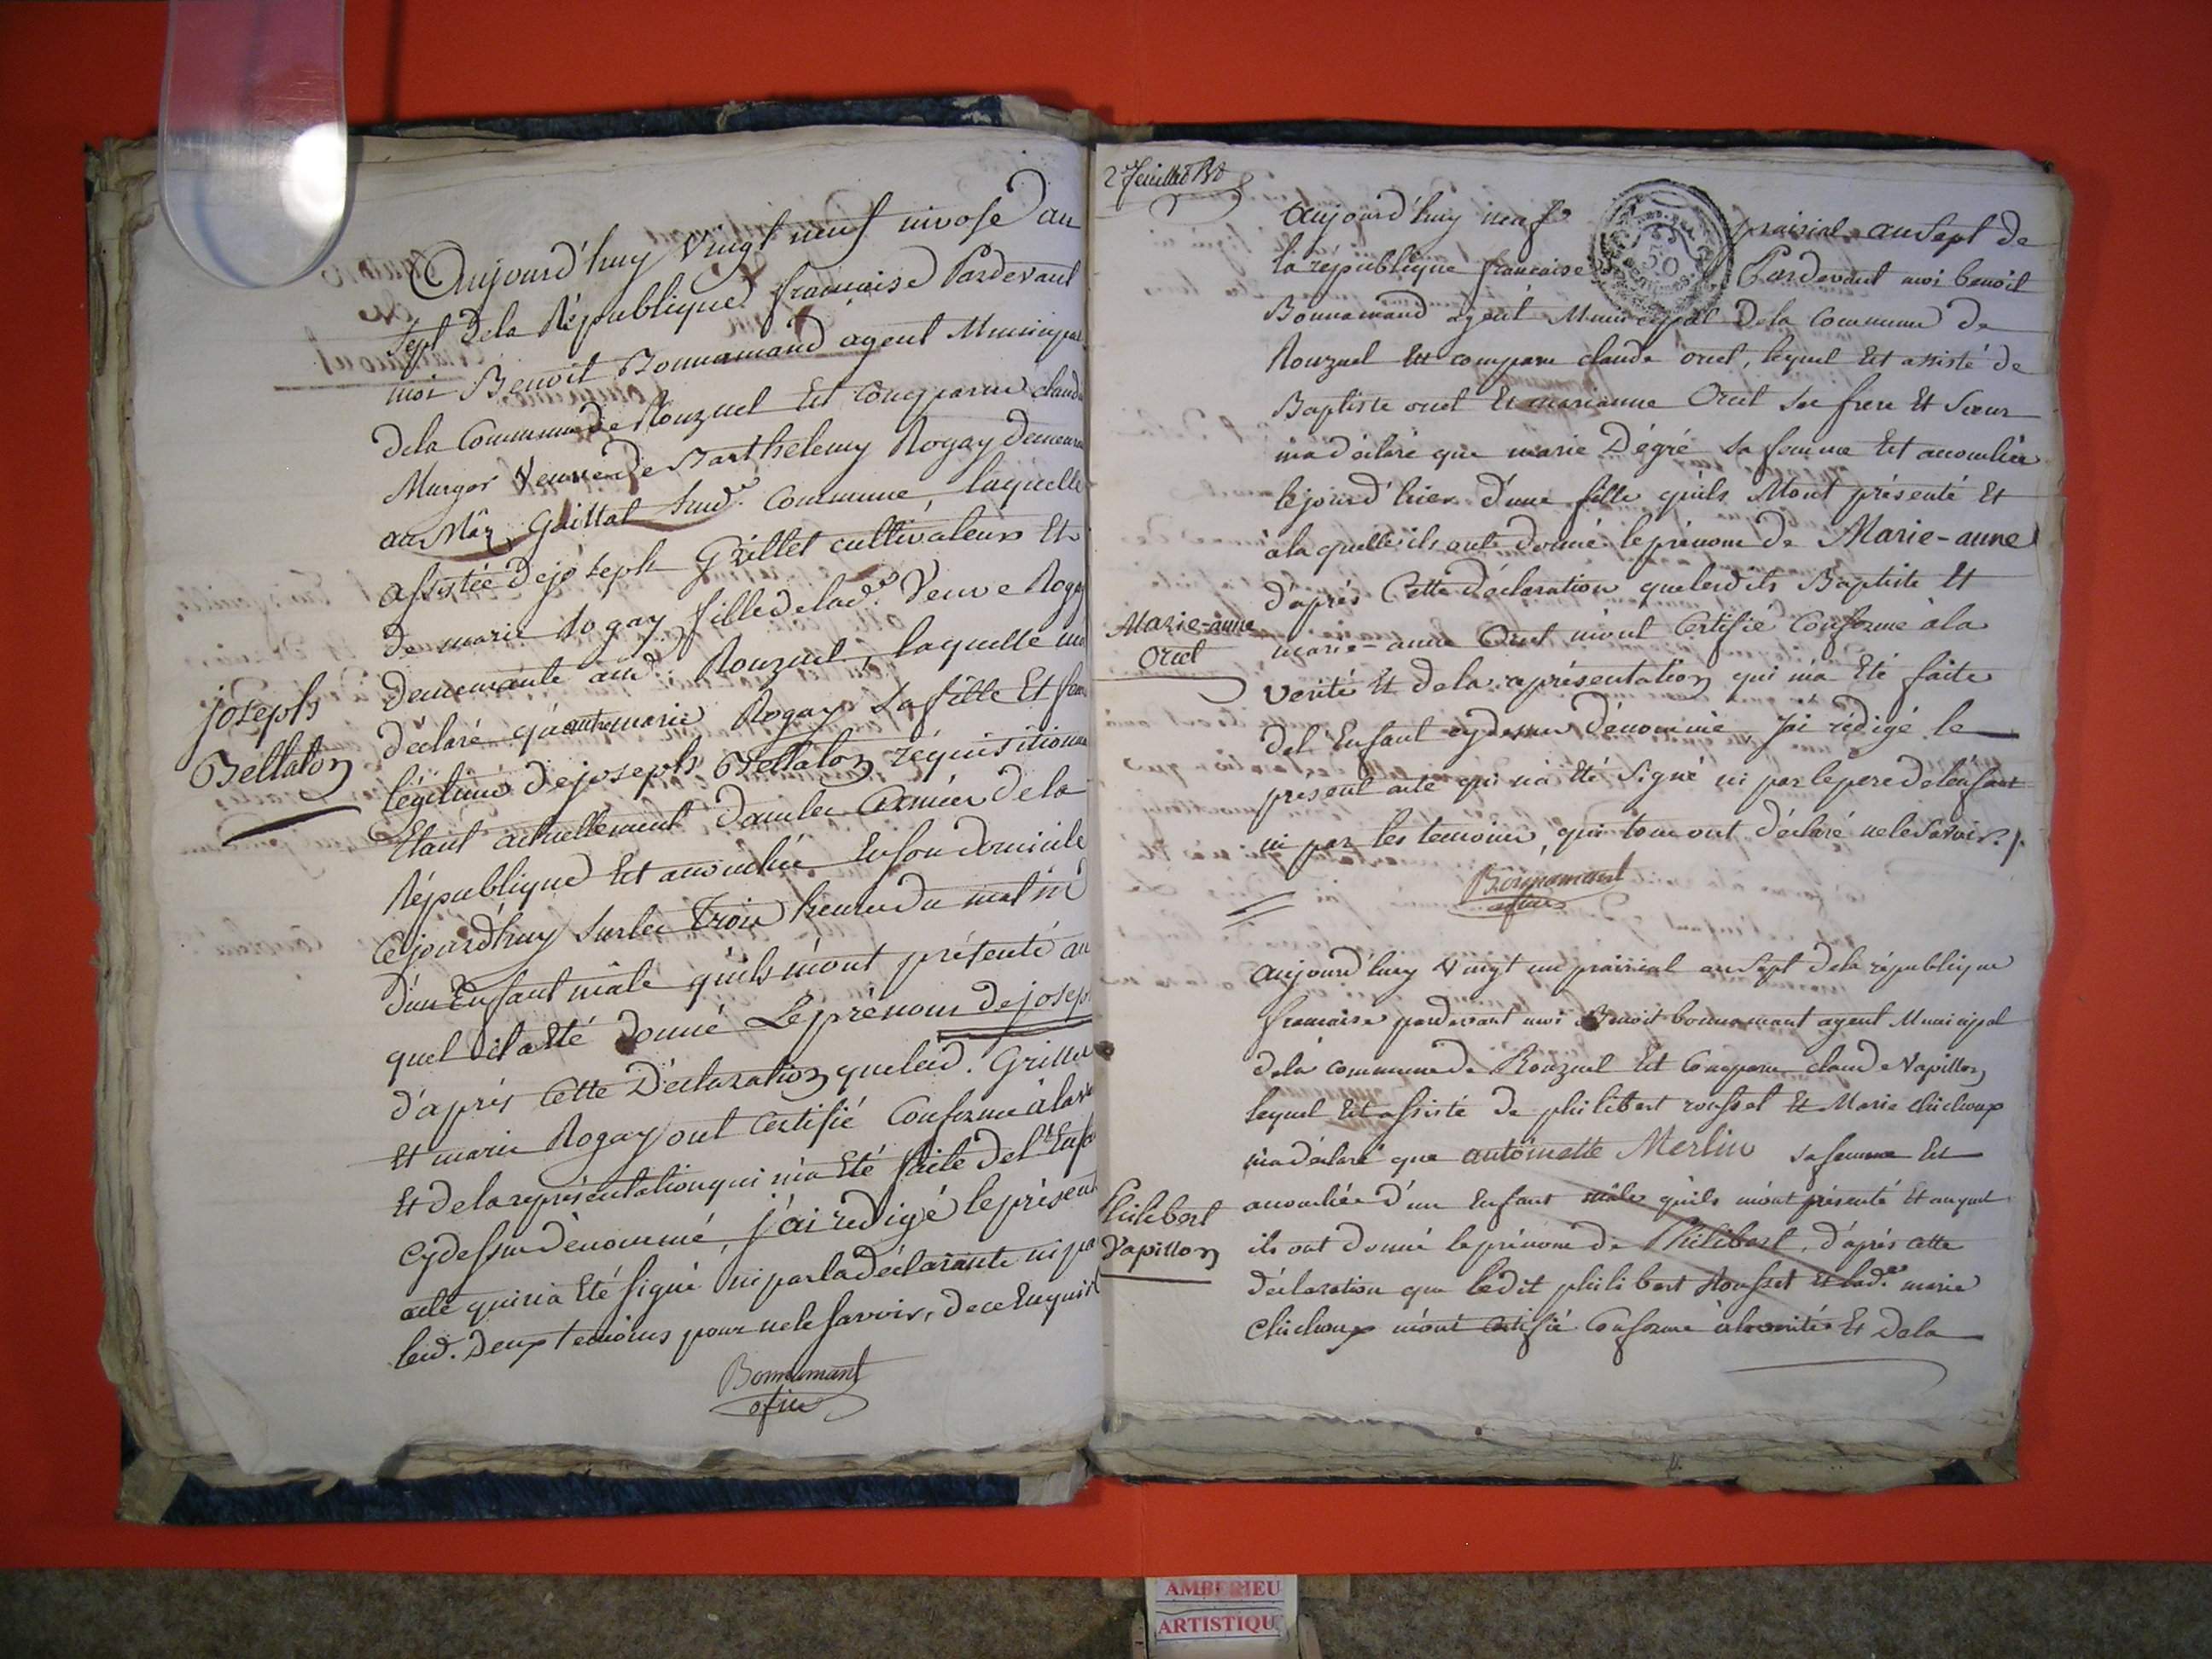 Aujourd'huy vingt neuf nivose an
sept de la République française Pardevant
moi Benoit Bonnamand agent Municipal
de la Commune de Rouzuel Est Comparue claud
Murger Veuve de Barthelemy Rogay demeura
au Mâz Gaillat sud. Commune, laquelle
assistée de joseph Grillet cultivateur Et
de marie Rogay fille de lad.e Veuve Rogay
demeurante aud. Rouzuel, laquelle ma
déclaré qu'autre marie Rogay sa fille Et fem
légitime de joseph Bellaton réquisitionn
Etant actuellement dans les Armées de la
République Est accouchée En son domicile
Cejourd'huy sur les trois heures du matin
d'un Enfant mâle qu'ils m'ont présenté au
quel il a Eté donné Le prénom de josep
d'après Cette Déclaration que led. Grillet
Et marie Rogay ont Certifié Conforme à la ve
Et de la représentation qui m'a Eté faite de l'Enfa
cydessus dénommé, j'ai redigé le présent
acte qui n'a Eté signé ni par la déclarante ni pa
lesd. Deux temoins pour ne le savoir, de ce Enquis
Bonnamant
ofier
joseph
Bellaton
2.e feuillet
Aujourd'huy neuf prairial an sept de
la république francaise Pardevant moi benoit
Bonnamand agent Municipal de la Commune de
Rouzuel Est comparu claude orcet, lequel Est assisté de
Baptiste orcet Et marianne Orcet ses frere Et Sœur
m'a déclaré que marie Dégré sa femme Est accouchée
le jour d'hier d'une fille qu'ils M'ont présenté Et
à la quelle ils ont donné le prénom de Marie-anne
d'après Cette déclaration que lesdits Baptiste Et
marie-anne Orcet m'ont Certifié Conforme à la
verité Et de la représentation qui m'a Eté faite
de l'Enfant cydessus dénommé j'ai rédigé le
present acte qui n'a Eté Signé ni par le pere de l'enfant
ni par les temoins, qui tous ont déclaré ne le Savoir./.
Bonnamant
ofier
Marie-anne
Orcet
aujourd'huy vingt un prairial an Sept de la république
francaise pardevant moi Benoit bonnamant agent Municipal
de la commune de Rouzuel Est Comparu claude Vapillon
lequel Est assisté de philibert rousset Et Marie chichoux
m'a déclaré que antoinette Merlin sa femme Est
accouchée d'un Enfant mâle qu'ils m'ont présenté Et auquel
ils ont donné le prénom de Philibert, d'après cette
déclaration que ledit philibert Rousset Et lad.e marie
Chichoux m'ont Certifié Conforme à la verité Et de la
Philibert
Vapillon
50
AMBERIEU
ARTISTIQU